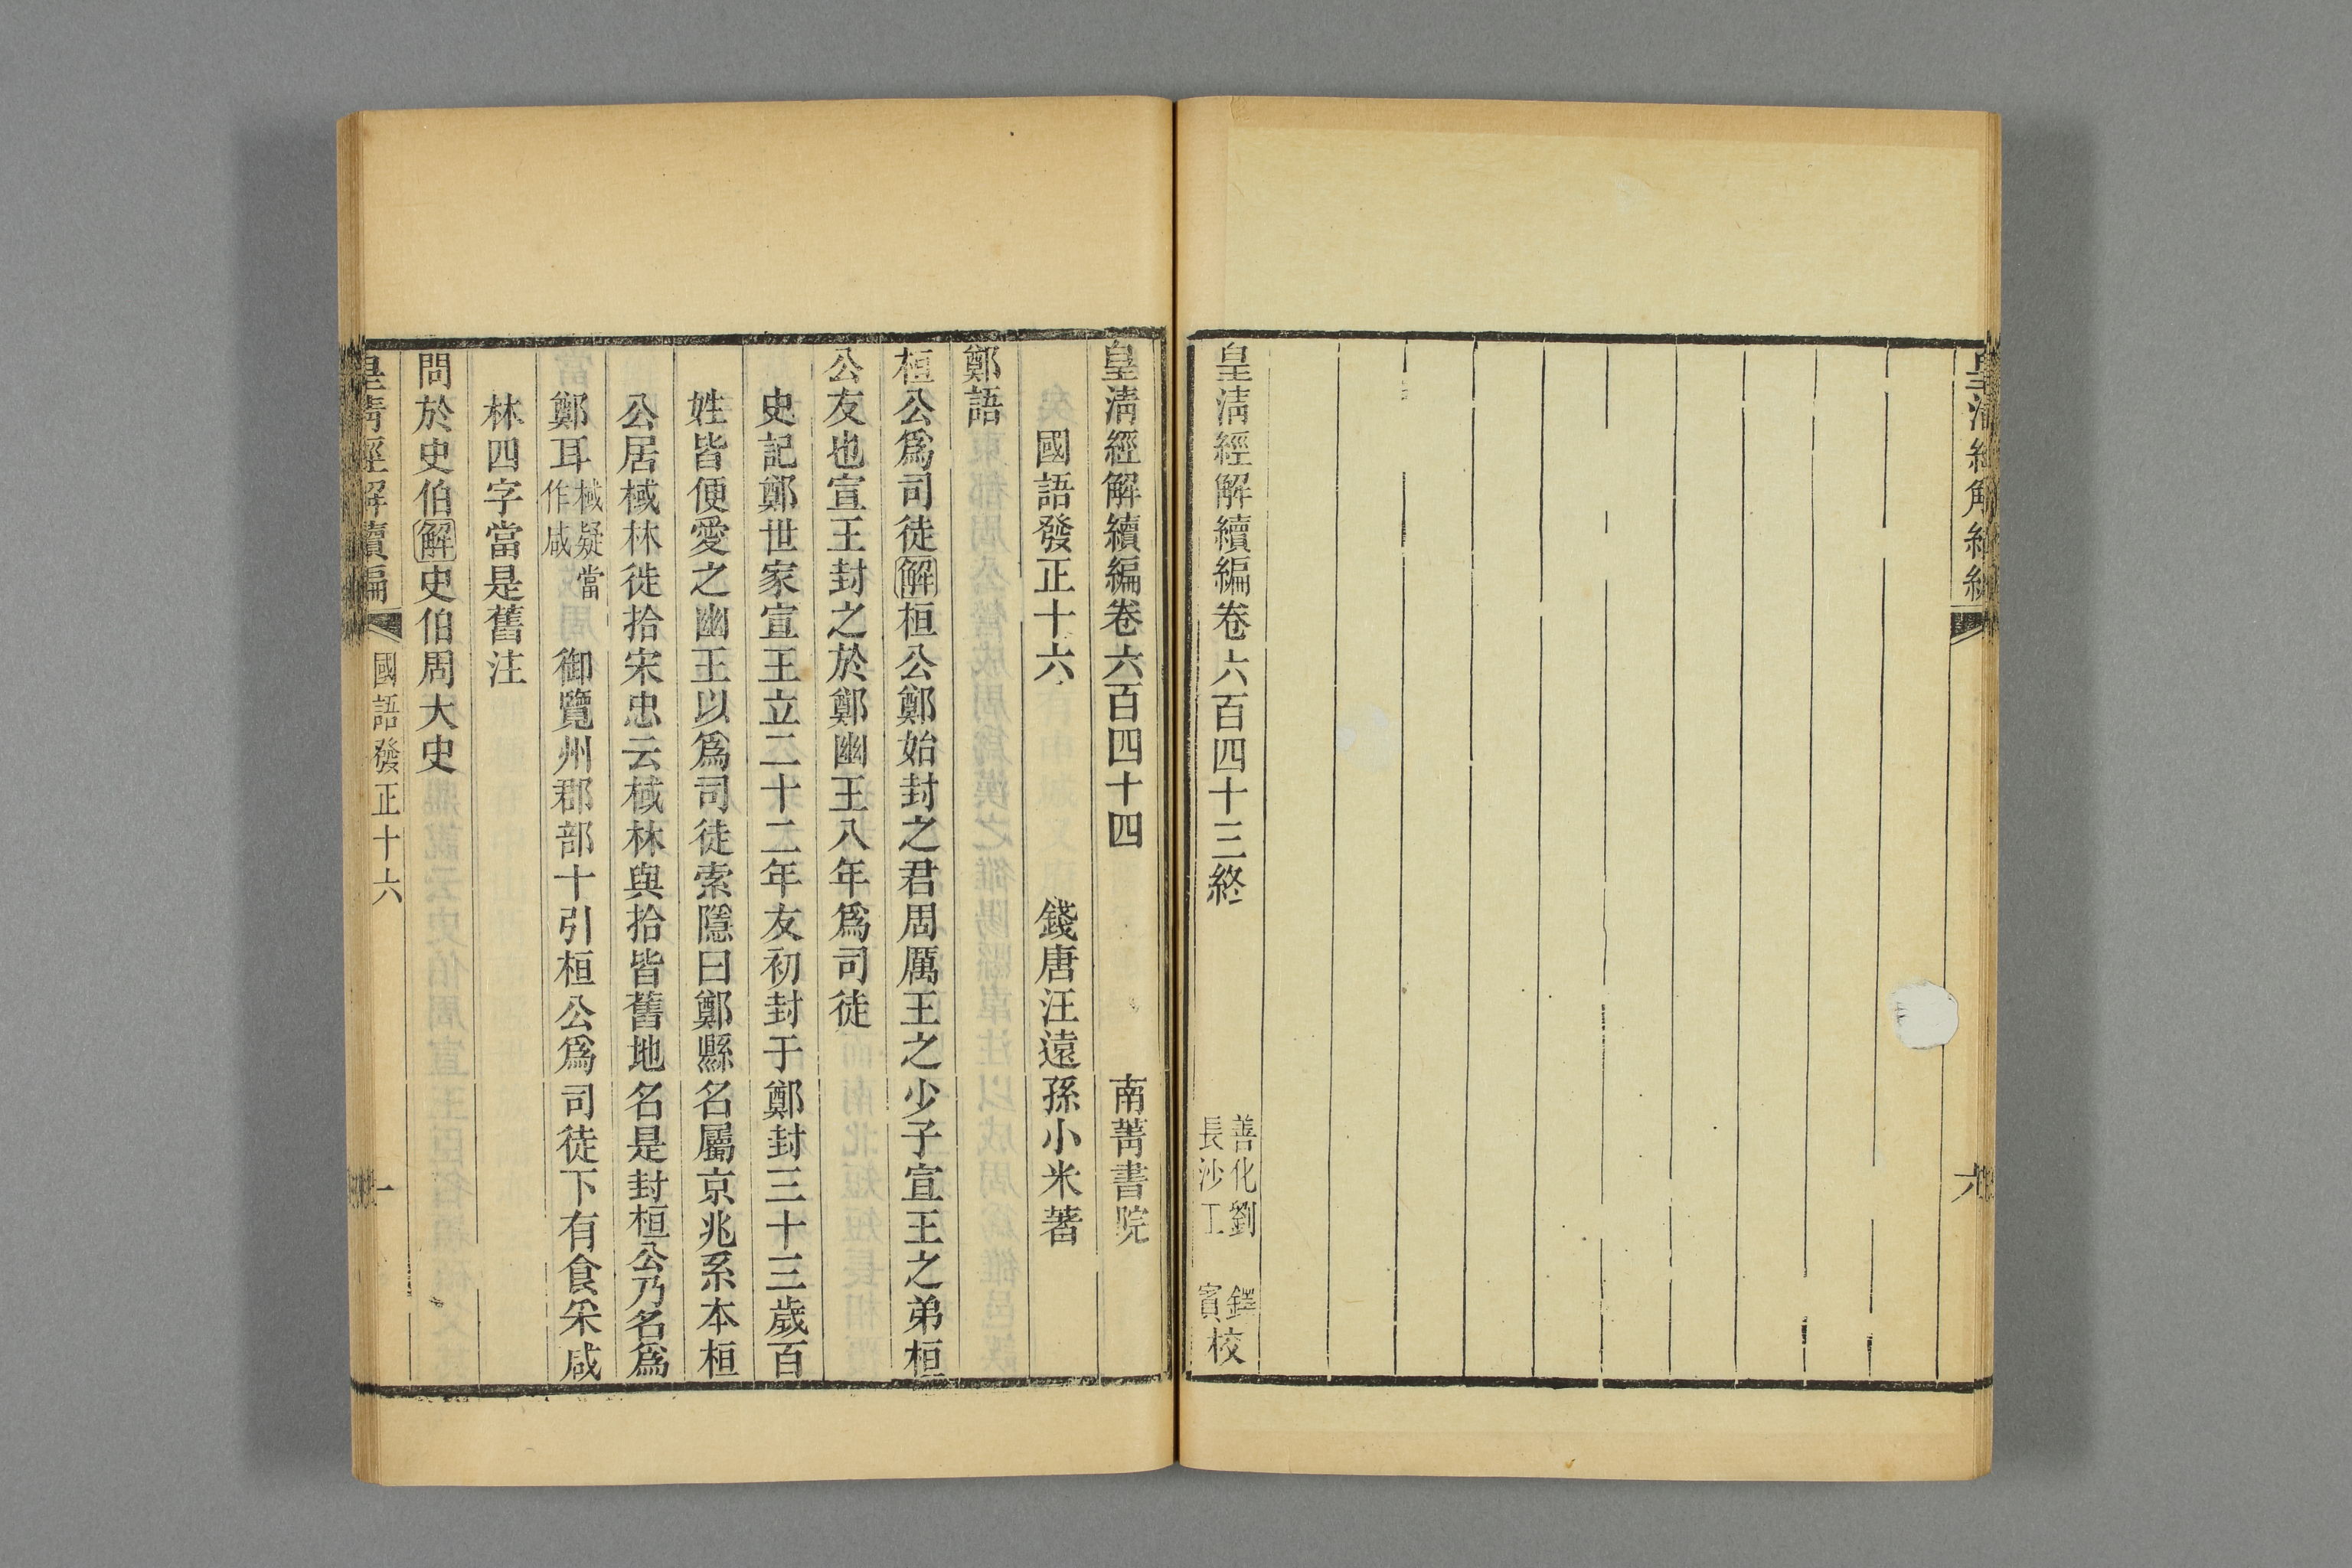 皇清經解續編
六
皇清經解續編卷六百四十三終
善化劉 鐸
長沙工 賓
校
皇清經解續編卷六百四十四 南菁書院
國語發正十六 錢唐汪遠孫小米著
鄭語
桓公爲司徒解桓公鄭始封之君周厲王之少子宣王之弟桓
公友也宣王封之於鄭幽王八年爲司徒
史記鄭世家宣王立二十二年友初封于鄭封三十三歲百
姓皆便愛之幽王以爲司徒索隱曰鄭縣名屬京兆系本桓
公居棫林徙拾宋忠云棫林與拾皆舊地名是封桓公乃名爲
鄭耳棫疑當作咸 御覽州郡部十引桓公爲司徒下有食采咸
林四字當是舊注
問於史伯解史伯周大史
皇清經解續編 國語發正十六 一